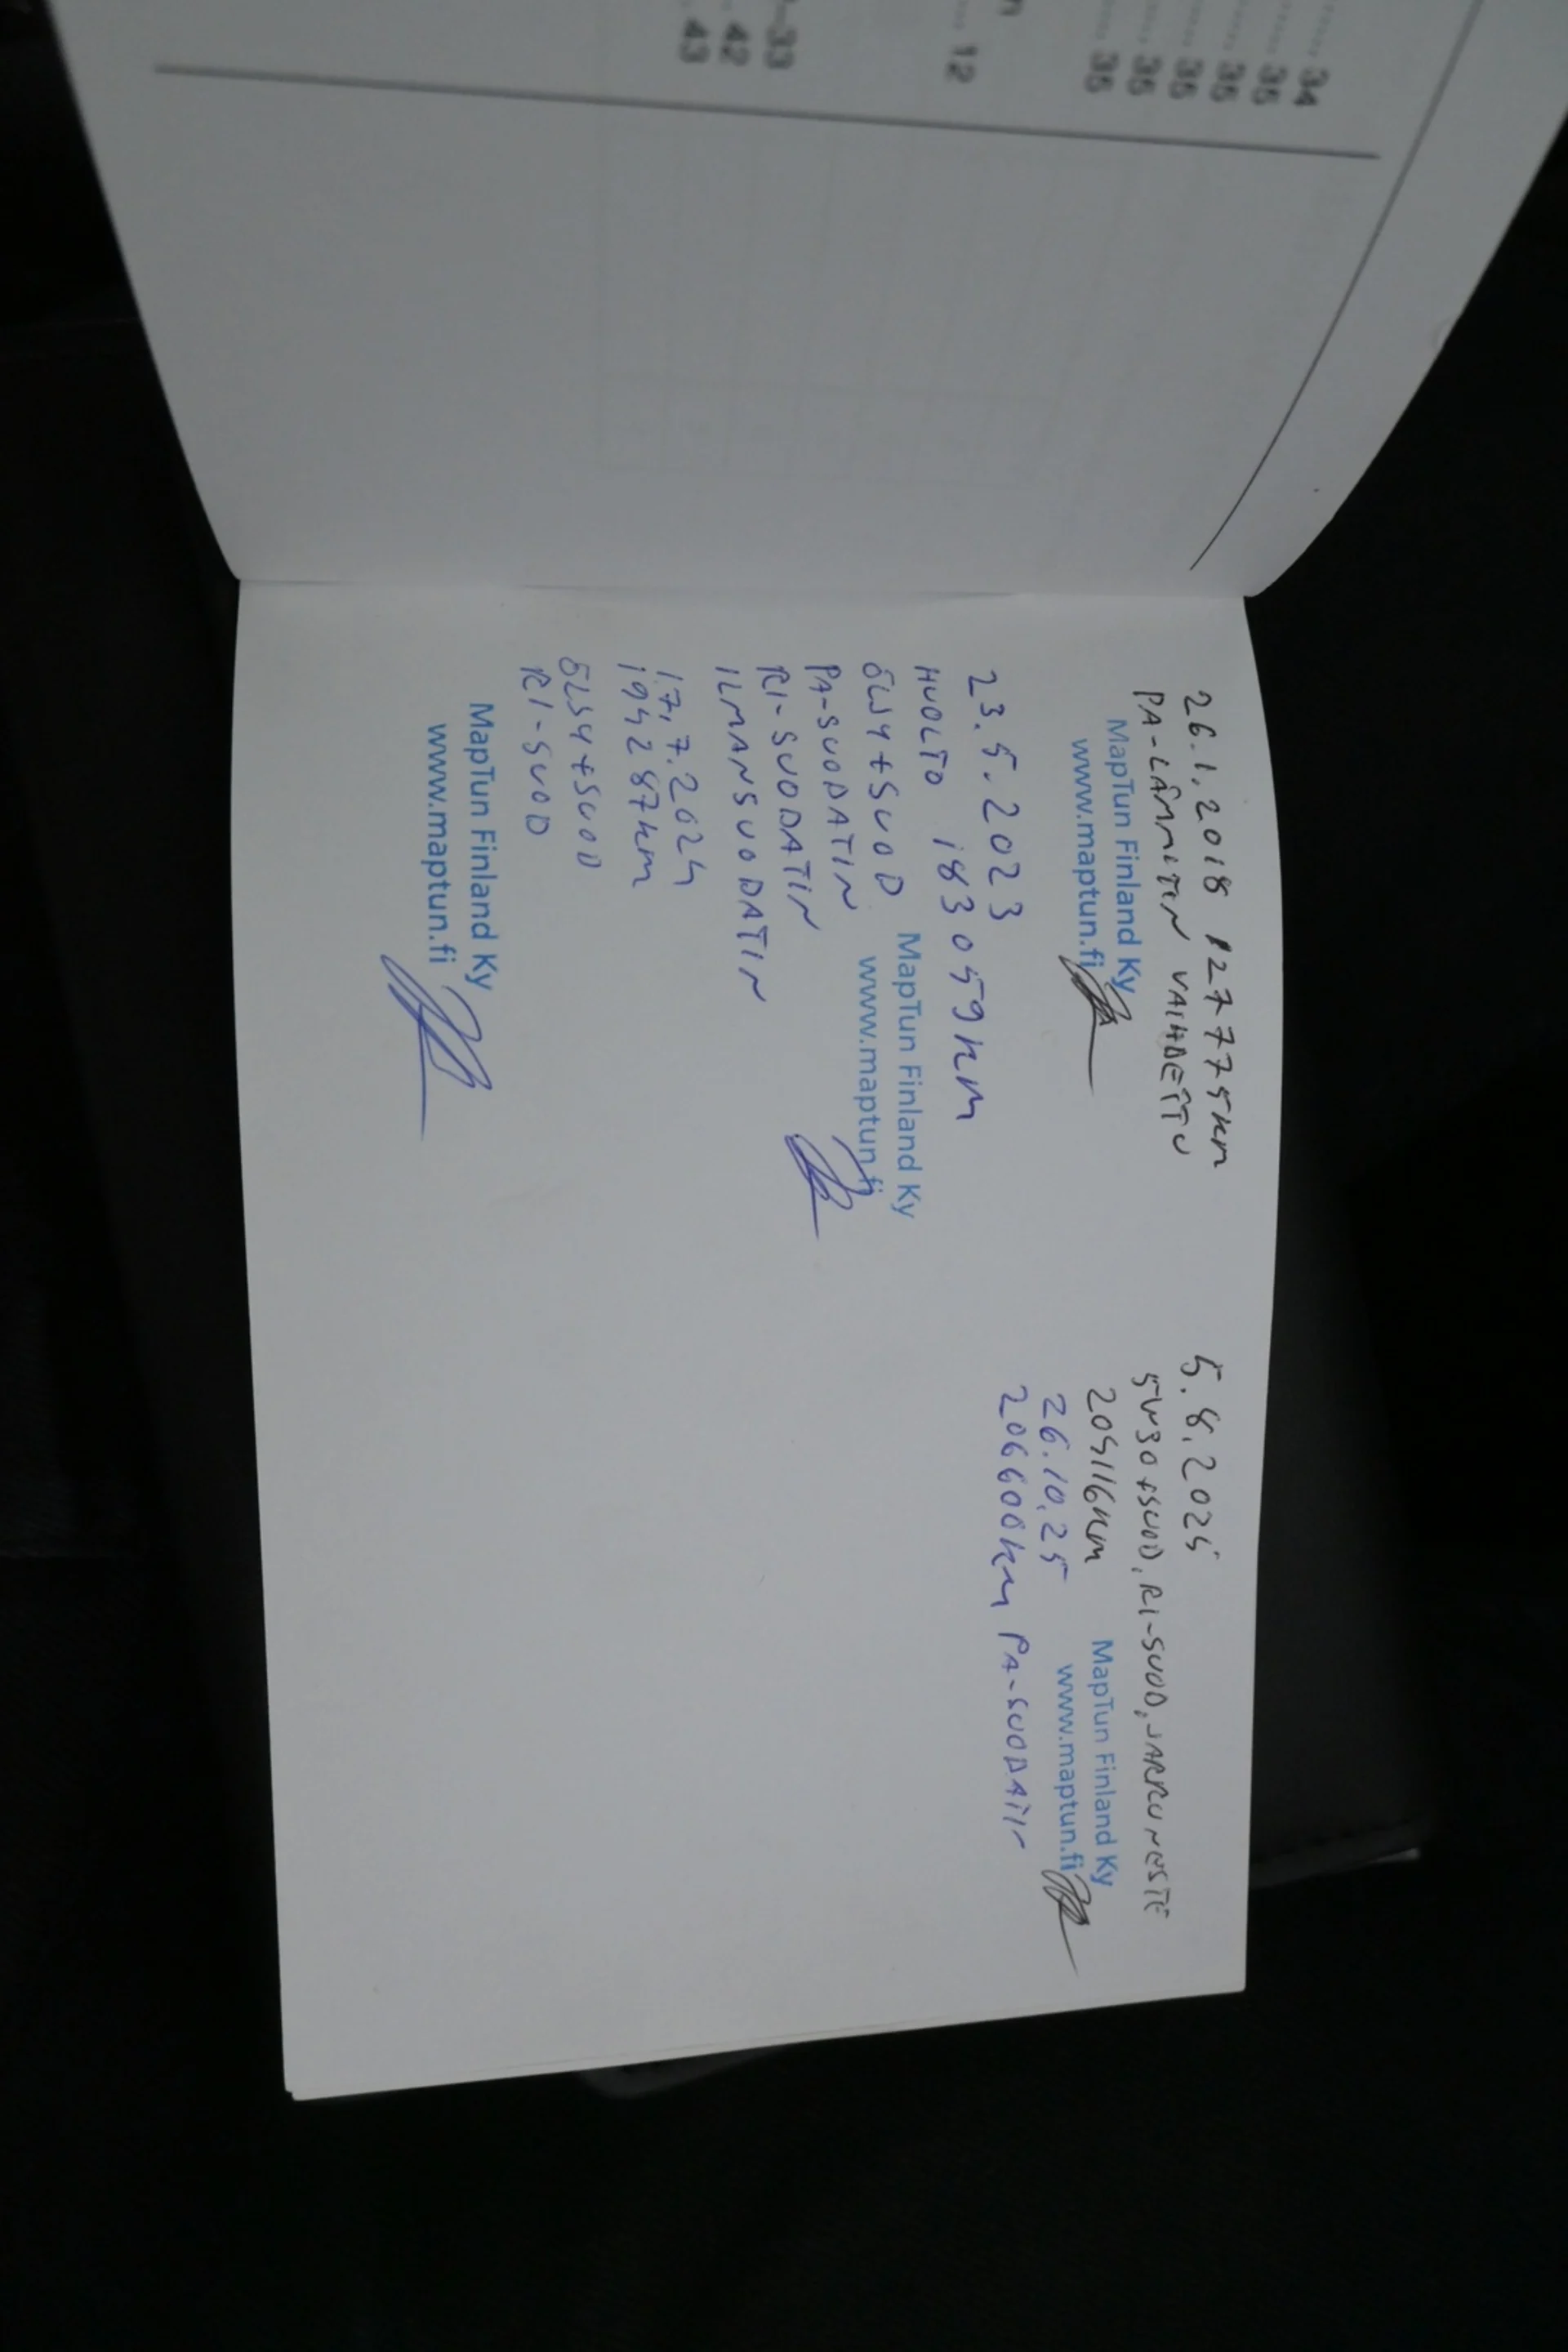 34
35
35
35
36
36
12
33
42
43
26.1.2018 127775km
PA-LÄMMITIN VAIHDETTU
MapTun Finland Ky
www.maptun.fi
23.5.2023
HUOLTO 183059km
ÖLJY+SUOD
PA-SUODATIN
RI-SUODATIN
ILMANSUODATIN
MapTun Finland Ky
www.maptun.fi
17.7.2024
194287km
ÖLJY+SUOD
RI-SUOD
MapTun Finland Ky
www.maptun.fi
5.8.2025
5W30+SUOD, RI-SUOD, JARRUNESTE
205116km
MapTun Finland Ky
www.maptun.fi
26.10.25
206600km PA-SUODATIN